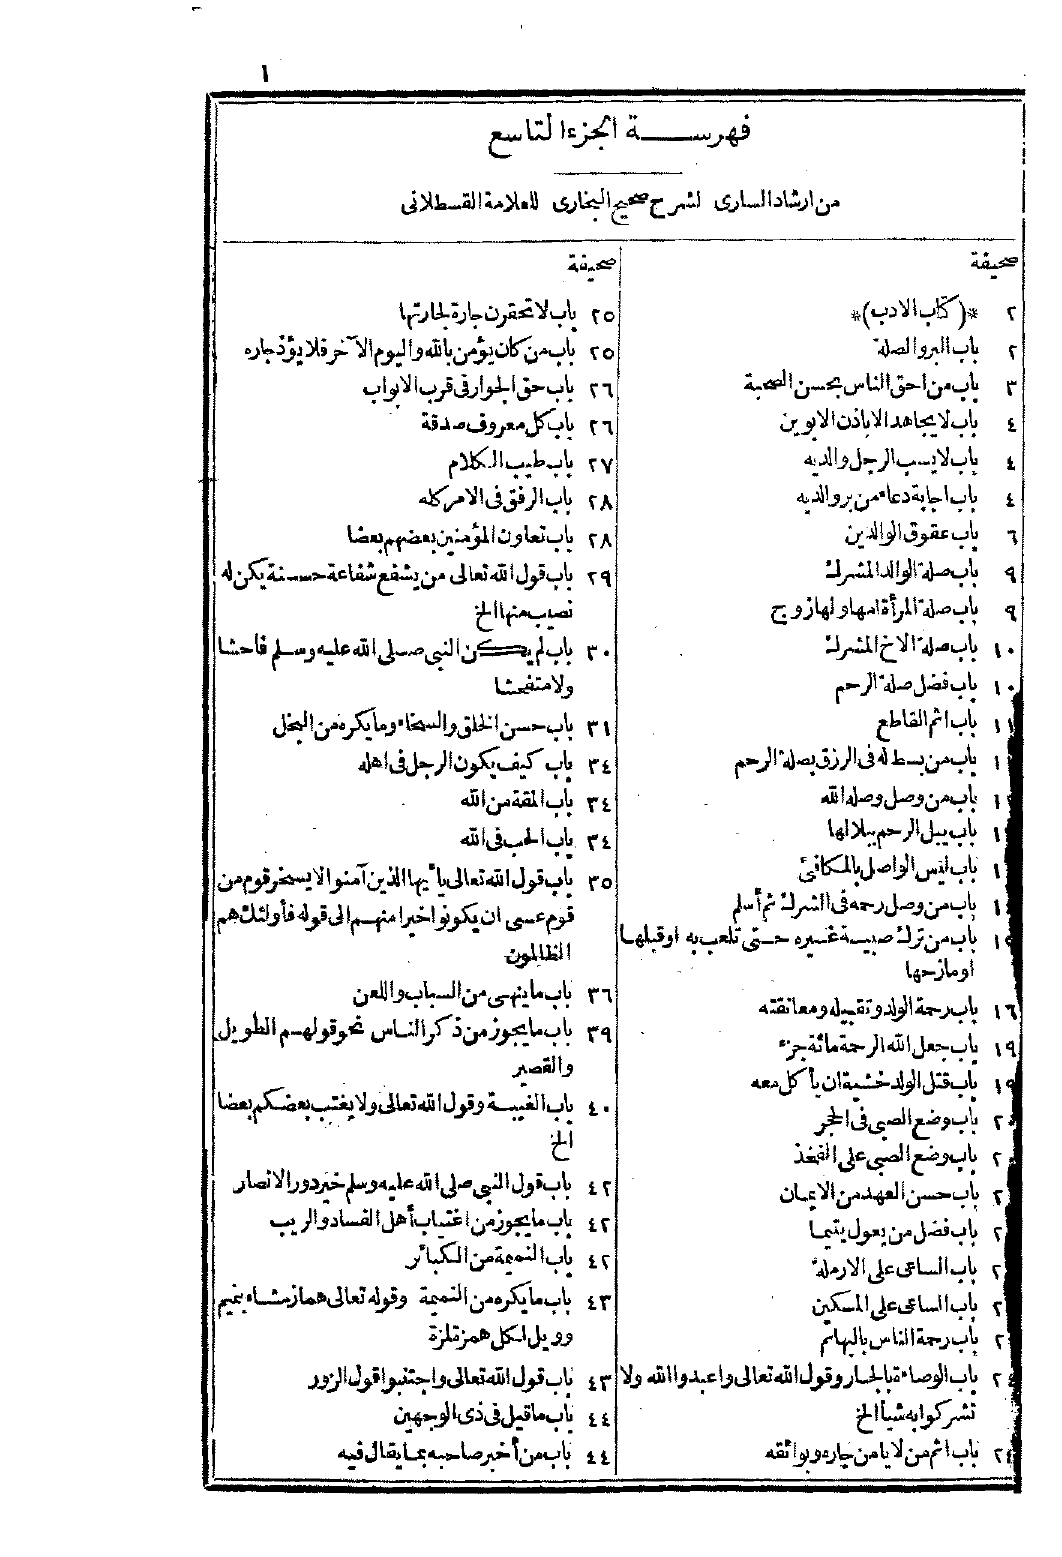 ١
فهرسة الجزء التاسع
من ارشاد الساري لشرح صحيح البخاري للعلامة القسطلاني
صحيفة
٢ *(كتاب الادب)*
٢ باب البر والصلة
٣ باب من احق الناس بحسن الصحبة
٤ باب لا يجاهد الا باذن الابوين
٤ باب لا يسب الرجل والديه
٤ باب اجابة دعاء من بر والديه
٦ باب عقوق الوالدين
٩ باب صلة الوالد المشرك
٩ باب صلة المرأة امها ولها زوج
١٠ باب صلة الاخ المشرك
١٠ باب فضل صلة الرحم
١١ باب اثم القاطع
١ باب من بسط له فى الرزق بصلة الرحم
١ باب من وصل وصله الله
١ باب يبل الرحم ببلالها
١ باب ليس الواصل بالمكافئ
١ باب من وصل رحمه فى الشرك ثم أسلم
١ باب من ترك صبية غيره حتى تلعب به او قبلها
او مازحها
١٦ باب رحمة الولد وتقبيله ومعانقته
١٩ باب جعل الله الرحمة مائة جزء
١٩ باب قتل الولد خشية ان يأكل معه
٢٠ باب وضع الصبى فى الحجر
٢ باب وضع الصبى على الفخذ
٢ باب حسن العهد من الايمان
٢ باب فضل من يعول يتيما
٢ باب الساعى على الارملة
٢ باب الساعى على المسكين
٢ باب رحمة الناس بالبهائم
٢٤ باب الوصاءة بالجار وقول الله تعالى واعبدوا الله ولا
تشركوا به شيأ الخ
٢٤ باب اثم من لا يامن جاره بوائقه
صحيفة
٢٥ باب لا تحقرن جارة لجارتها
٢٥ باب من كان يؤمن بالله واليوم الآخر فلا يؤذ جاره
٢٦ باب حق الجوار فى قرب الابواب
٢٦ باب كل معروف صدقة
٢٧ باب طيب الكلام
٢٨ باب الرفق فى الامر كله
٢٨ باب تعاون المؤمنين بعضهم بعضا
٢٩ باب قول الله تعالى من يشفع شفاعة حسنة يكن له
نصيب منها الخ
٣٠ باب لم يكن النبى صلى الله عليه وسلم فاحشا
ولا متفحشا
٣١ باب حسن الخلق والسخاء وما يكره من البخل
٣٤ باب كيف يكون الرجل فى اهله
٣٤ باب المقة من الله
٣٤ باب الحب فى الله
٣٥ باب قول الله تعالى يأيها الذين آمنوا لا يسخر قوم من
قوم عسى ان يكونوا خيرا منهم الى قوله فأولئك هم
الظالمون
٣٦ باب ما ينهى من السباب واللعن
٣٩ باب ما يجوز من ذكر الناس نحو قولهم الطويل
والقصير
٤٠ باب الغيبة وقول الله تعالى ولا يغتب بعضكم بعضا
الخ
٤٢ باب قول النبى صلى الله عليه وسلم خير دور الانصار
٤٢ باب ما يجوز من اغتياب أهل الفساد والريب
٤٢ باب النميمة من الكبائر
٤٣ باب ما يكره من النميمة وقوله تعالى هماز مشاء بنميم
وويل لكل همزة لمزة
٤٣ باب قول الله تعالى واجتنبوا قول الزور
٤٤ باب ما قيل فى ذى الوجهين
٤٤ باب من أخبر صاحبه بما يقال فيه